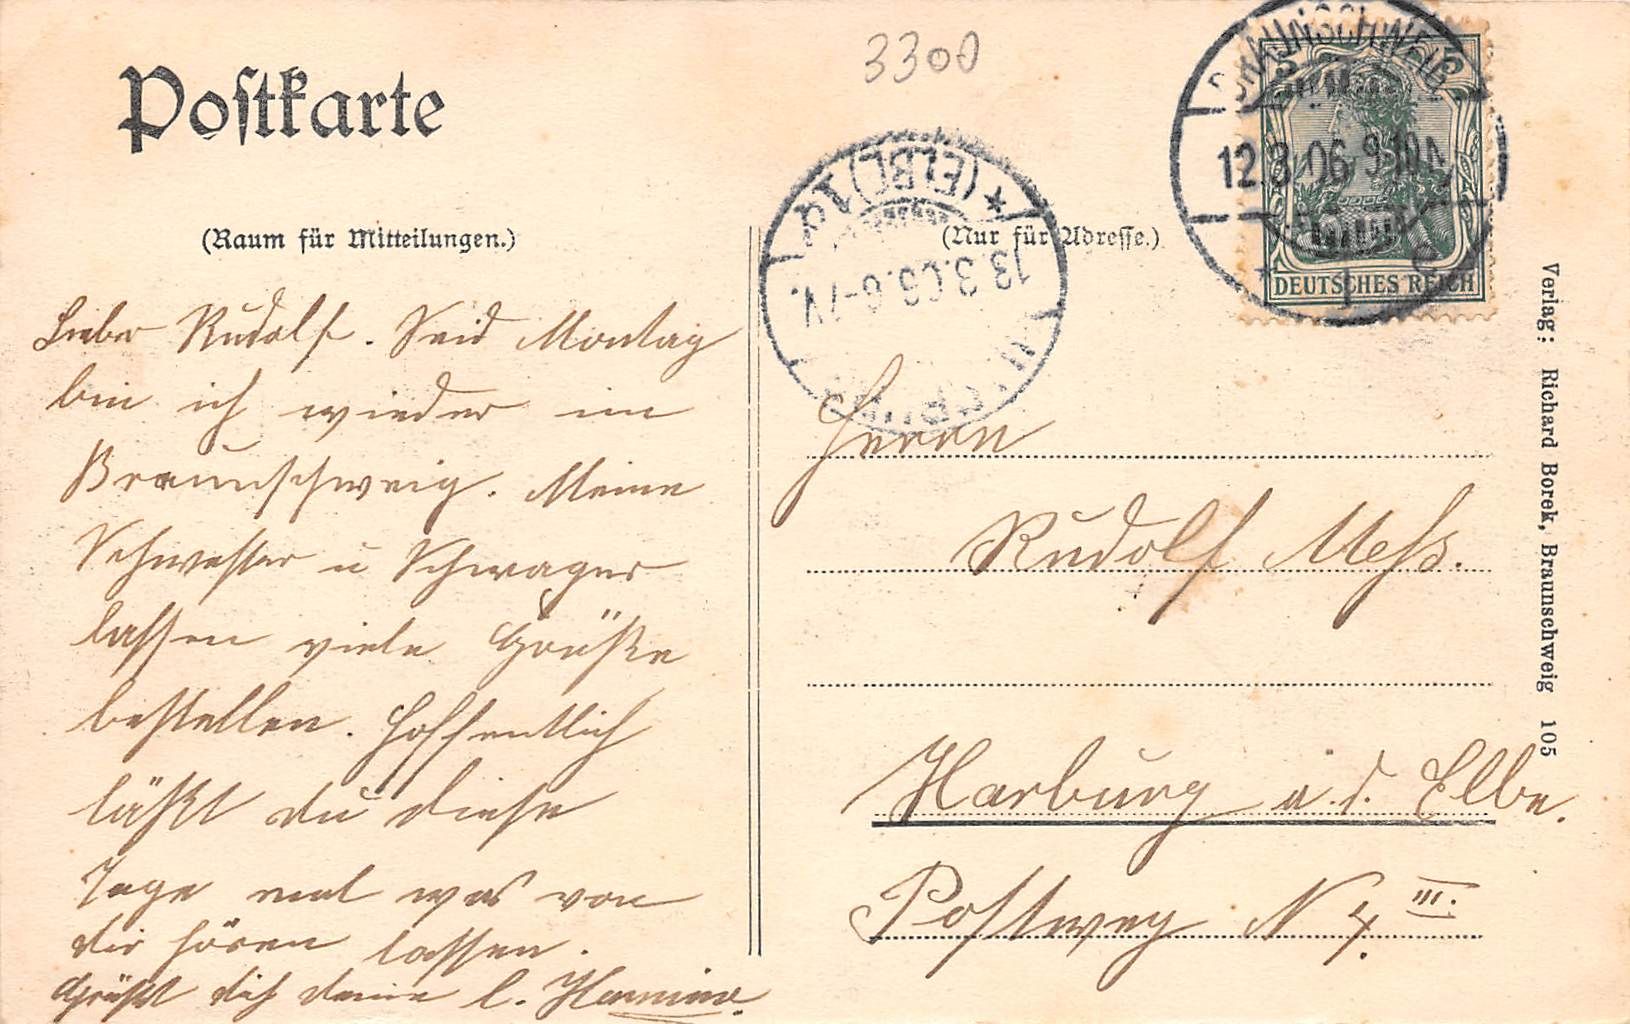 3300
Postkarte
(Raum für Mitteilungen.)
Lieber Rudolf. Seid Montag
bin ich wieder in
Braunschweig. Meine
Schwester u Schwager
lassen viele Grüße
bestellen. Hoffentlich
läßt du diese
Tage mal was von
dir hören lassen.
Grüßt dich deine l.
(Nur für Adresse.)
Herrn
Rudolf Mess.
Harburg a. d. Elbe.
Postweg N 7. III.
BRAUNSCHWEIG
12.3.06. 9-10
DEUTSCHES REICH
5 5
(ELBE) 1
13.3.06. 6-7 V.
Verlag: Richard Borek, Braunschweig 105